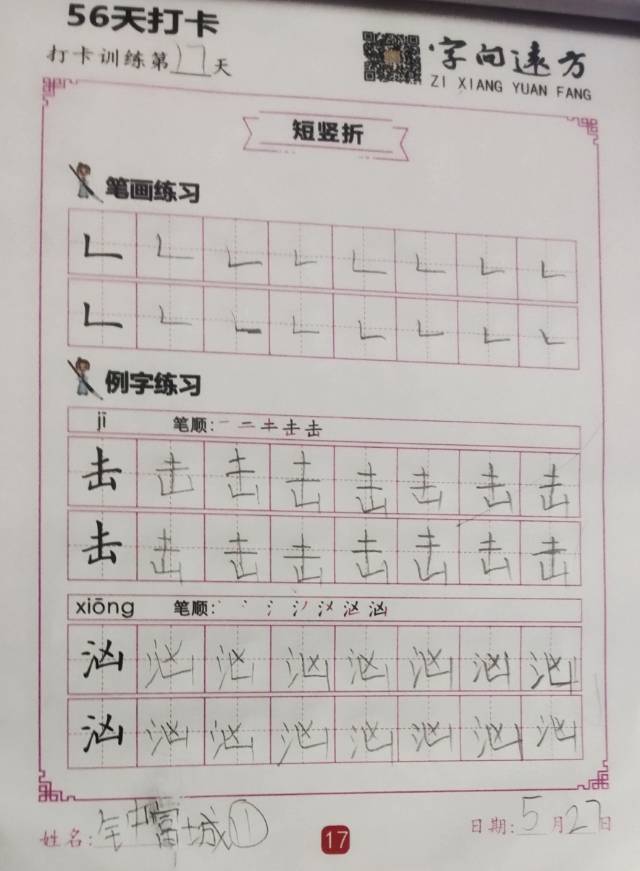 56天打卡
打卡训练第17天
字向远方
ZI XIANG YUAN FANG
短竖折
笔画练习
𠃊 𠃊 𠃊 𠃊 𠃊 𠃊 𠃊 𠃊
𠃊 𠃊 𠃊 𠃊 𠃊 𠃊 𠃊 𠃊
例字练习
jī 笔顺: 一 二 キ 击 击
击 击 击 击 击 击 击 击
击 击 击 击 击 击 击 击
xiōng 笔顺: 丶 冫 氵 汹 汹
汹 汹 汹 汹 汹 汹 汹 汹
汹 汹 汹 汹 汹 汹 汹 汹
姓名: 钟富城⑪
17
日期: 5月27日